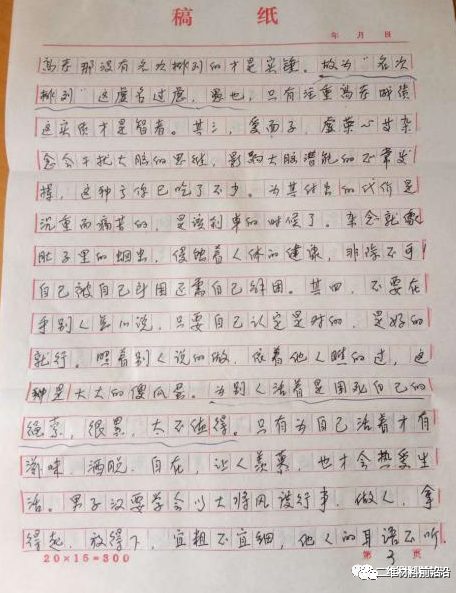 稿纸
年 月 日
高考那没有名次排列的才是实锤。故为“名次
排列”这虚名过虑，累也，只有注重高考成绩
这实质才是智者。其三，爱面子，虚荣心等杂
念会干扰大脑的思维，影响大脑潜能的正常发
挥，这种亏你已吃了不少。为其付出的代价是
沉重而痛苦的，是该刹车的时候了。杂念就像
肚子里的蛔虫，侵蚀着人体的健康，非除不可！
自己被自己斗困还需自己解困。其四，不要在
乎别人怎么说，只要自己认定是对的，是好的
就行。照着别人说的做，依着他人瞧的过，这
种是大大的傻瓜蛋。为别人活着是困死自己的
绳索，很累，太不值得。只有为自己活着才有
滋味，洒脱，自在，让人羡慕，也才会热爱生
活。男子汉要学会以大将风度行事，做人，拿
得起，放得下，宜粗不宜细，他人的耳语不听，
20×15=300
第 3 页
二维材料前沿